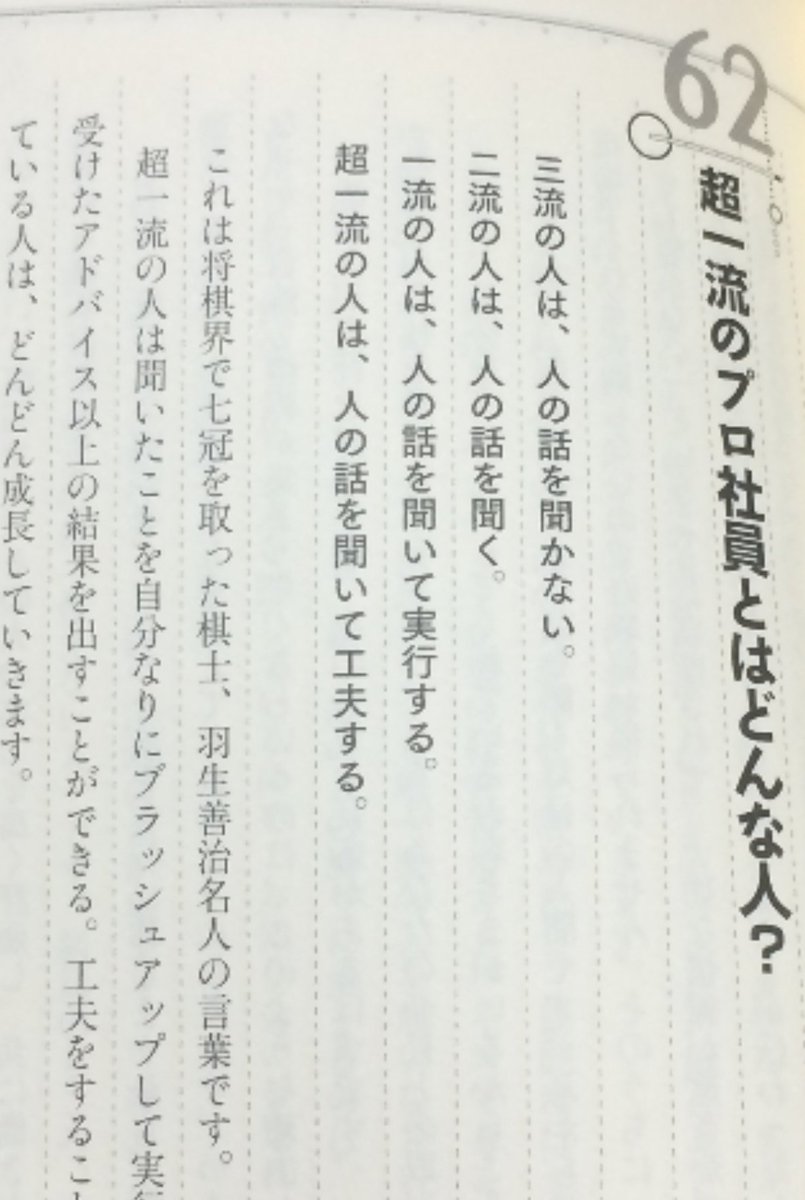 62
超一流のプロ社員とはどんな人?
三流の人は、人の話を聞かない。
二流の人は、人の話を聞く。
一流の人は、人の話を聞いて実行する。
超一流の人は、人の話を聞いて工夫する。
これは将棋界で七冠を取った棋士、羽生善治名人の言葉です。
超一流の人は聞いたことを自分なりにブラッシュアップして実
受けたアドバイス以上の結果を出すことができる。工夫をするこ
ている人は、どんどん成長していきます。